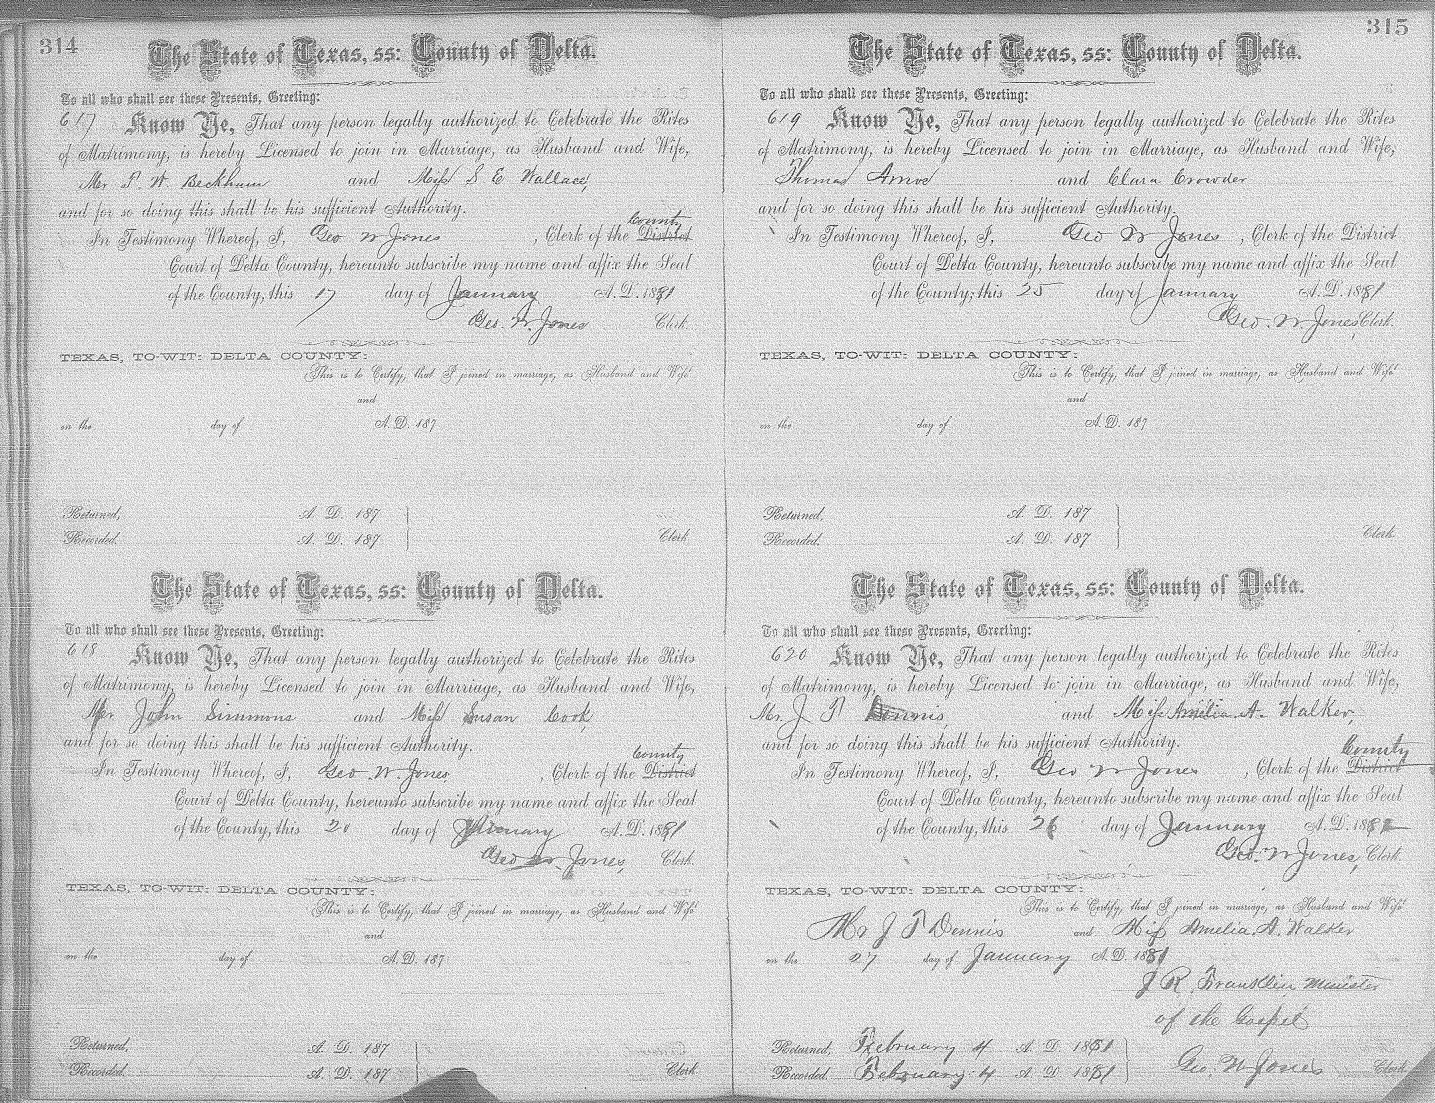 314
The State of Texas, ss: County of Delta.
To all who shall see these Presents, Greeting:
617 Know Ye, That any person legally authorized to Celebrate the Rites
of Matrimony, is hereby Licensed to join in Marriage, as Husband and Wife,
Mr W. Beckham and Miss S E Wallace,
and for so doing this shall be his sufficient Authority.
County
In Testimony Whereof, I, Geo W Jones, Clerk of the District
Court of Delta County, hereunto subscribe my name and affix the Seal
of the County, this 17 day of January A.D. 1881
Geo. W. Jones Clerk.
TEXAS, TO-WIT: DELTA COUNTY:
This is to Certify, that I joined in marriage, as Husband and Wife
and
on the day of A.D. 187
Returned, A. D. 187
Recorded. A. D. 187 Clerk
The State of Texas, ss: County of Delta.
To all who shall see these Presents, Greeting:
618 Know Ye, That any person legally authorized to Celebrate the Rites
of Matrimony, is hereby Licensed to join in Marriage, as Husband and Wife,
Mr John Simmons and Miss Susan Cook,
and for so doing this shall be his sufficient Authority.
County
In Testimony Whereof, I, Geo W. Jones, Clerk of the District
Court of Delta County, hereunto subscribe my name and affix the Seal
of the County, this 20 day of January A.D. 1881
Geo W. Jones, Clerk.
TEXAS, TO-WIT: DELTA COUNTY:
This is to Certify, that I joined in marriage, as Husband and Wife
and
on the day of A.D. 187
Returned, A. D. 187
Recorded. A. D. 187 Clerk
315
The State of Texas, ss: County of Delta.
To all who shall see these Presents, Greeting:
619 Know Ye, That any person legally authorized to Celebrate the Rites
of Matrimony, is hereby Licensed to join in Marriage, as Husband and Wife,
Thomas and Clara Crowder
and for so doing this shall be his sufficient Authority.
In Testimony Whereof, I, Geo W Jones, Clerk of the District
Court of Delta County, hereunto subscribe my name and affix the Seal
of the County, this 25 day of January A.D. 1881
Geo. W Jones, Clerk.
TEXAS, TO-WIT: DELTA COUNTY:
This is to Certify, that I joined in marriage, as Husband and Wife
and
on the day of A.D. 187
Returned, A. D. 187
Recorded. A. D. 187 Clerk
The State of Texas, ss: County of Delta.
To all who shall see these Presents, Greeting:
620 Know Ye, That any person legally authorized to Celebrate the Rites
of Matrimony, is hereby Licensed to join in Marriage, as Husband and Wife,
Mr. J T Dennis and Miss Amelia. A. Walker,
and for so doing this shall be his sufficient Authority.
County
In Testimony Whereof, I, Geo W Jones, Clerk of the District
Court of Delta County, hereunto subscribe my name and affix the Seal
of the County, this 26 day of January A.D. 188
Geo. W Jones, Clerk.
TEXAS, TO-WIT: DELTA COUNTY:
This is to Certify, that I joined in marriage, as Husband and Wife
Mr J T Dennis and Miss Amelia. A. Walker
on the 27 day of January A.D. 1881
J R. Franklin Minister
of the Gospel
Returned, February 4 A. D. 1881
Recorded. February 4 A. D 1881 Geo. W Jones Clerk